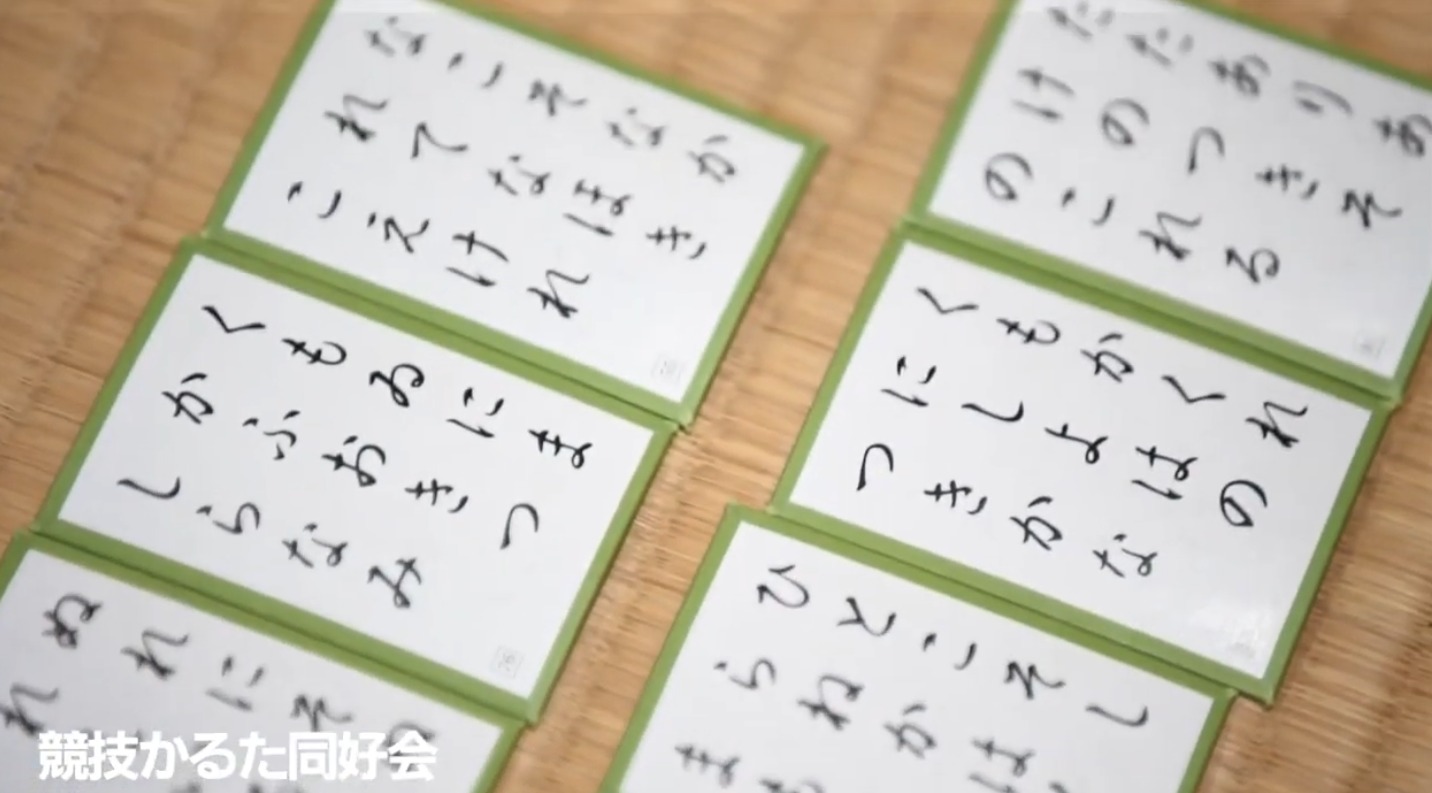 たたありあ
けのつきそ
のこれる
くもかくれ
にしよはの
つきかな
ひとこそし
らねかは
まも
なこそなか
れてなほき
こえけれ
くもゐにま
かふおきつ
しらなみ
ぬれにそぬ
れ
競技かるた同好会